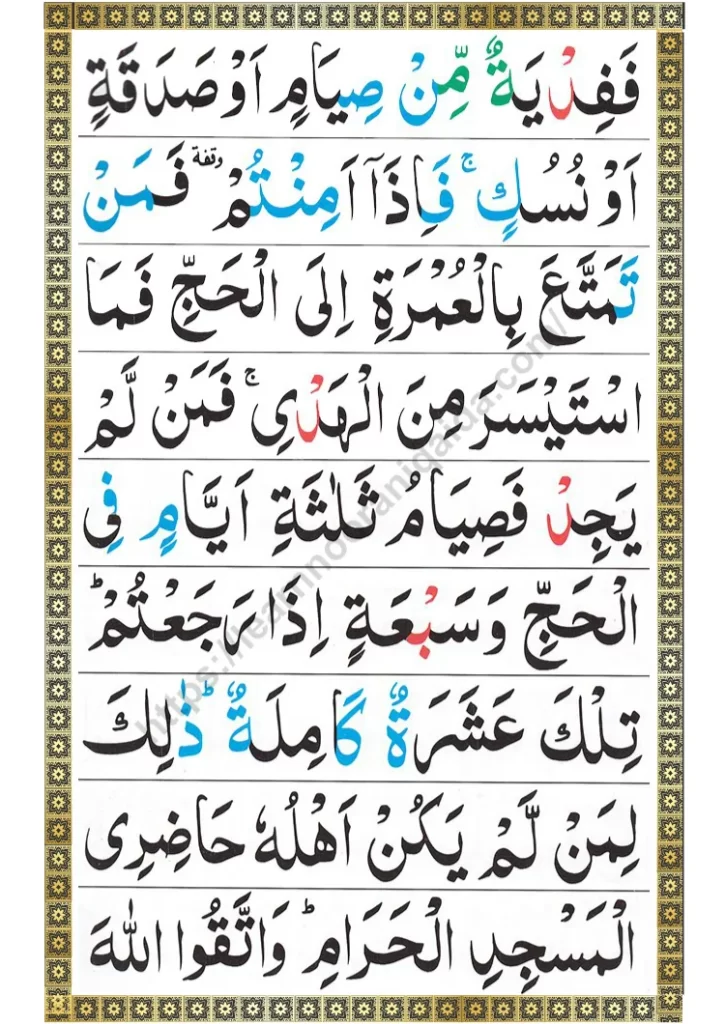 فَفِدْيَةٌ مِّنْ صِيَامٍ اَوْ صَدَقَةٍ
اَوْ نُسُكٍ ۚ فَاِذَاۤ اَمِنْتُمْ ٝ وقفة فَمَنْ
تَمَتَّعَ بِالْعُمْرَةِ اِلَى الْحَجِّ فَمَا
اسْتَيْسَرَ مِنَ الْهَدْىِ ۚ فَمَنْ لَّمْ
يَجِدْ فَصِيَامُ ثَلٰثَةِ اَيَّامٍ فِى
الْحَجِّ وَسَبْعَةٍ اِذَا رَجَعْتُمْ ؕ
تِلْكَ عَشَرَةٌ كَامِلَةٌ ؕ ذٰلِكَ
لِمَنْ لَّمْ يَكُنْ اَهْلُهٗ حَاضِرِى
الْمَسْجِدِ الْحَرَامِ ؕ وَاتَّقُوا اللّٰهَ
https://learnnooraniqaida.com/